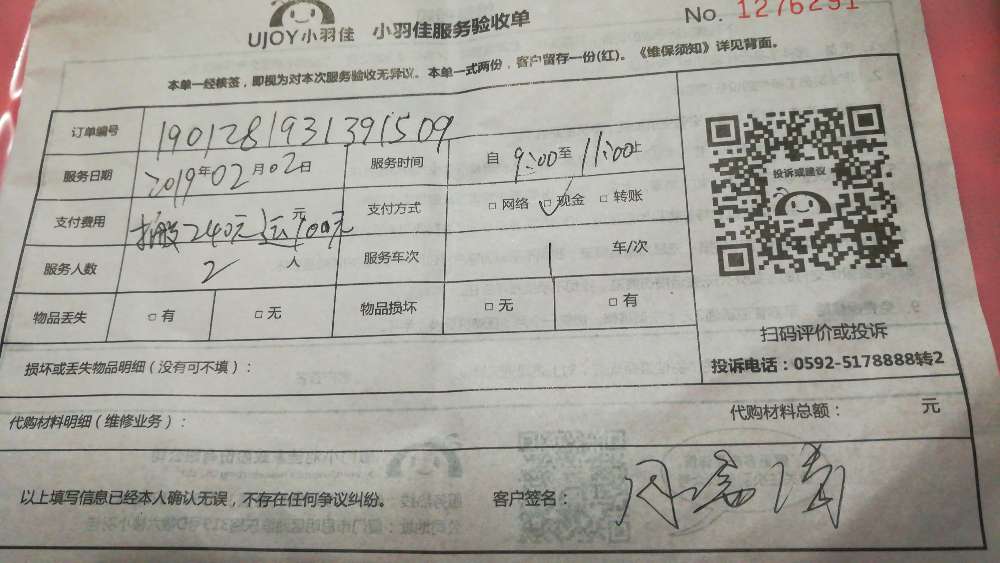 UJOY小羽佳 小羽佳服务验收单 No. 1276291
本单一经核签，即视为对本次服务验收无异议。本单一式两份，客户留存一份(红)。《维保须知》详见背面。
订单编号 1901281931391509
服务日期 2019年02月02日 服务时间 自 9:00至 11:00止
支付费用 搬240元运100元 元 支付方式 □ 网络 □ 现金 □ 转账
服务人数 2 人 服务车次 1 车/次
物品丢失 □ 有 □ 无 物品损坏 □ 无 □ 有
投诉或建议
扫码评价或投诉
投诉电话：0592-5178888转2
损坏或丢失物品明细（没有可不填）：
代购材料明细（维修业务）： 代购材料总额： 元
以上填写信息已经本人确认无误，不存在任何争议纠纷。 客户签名：